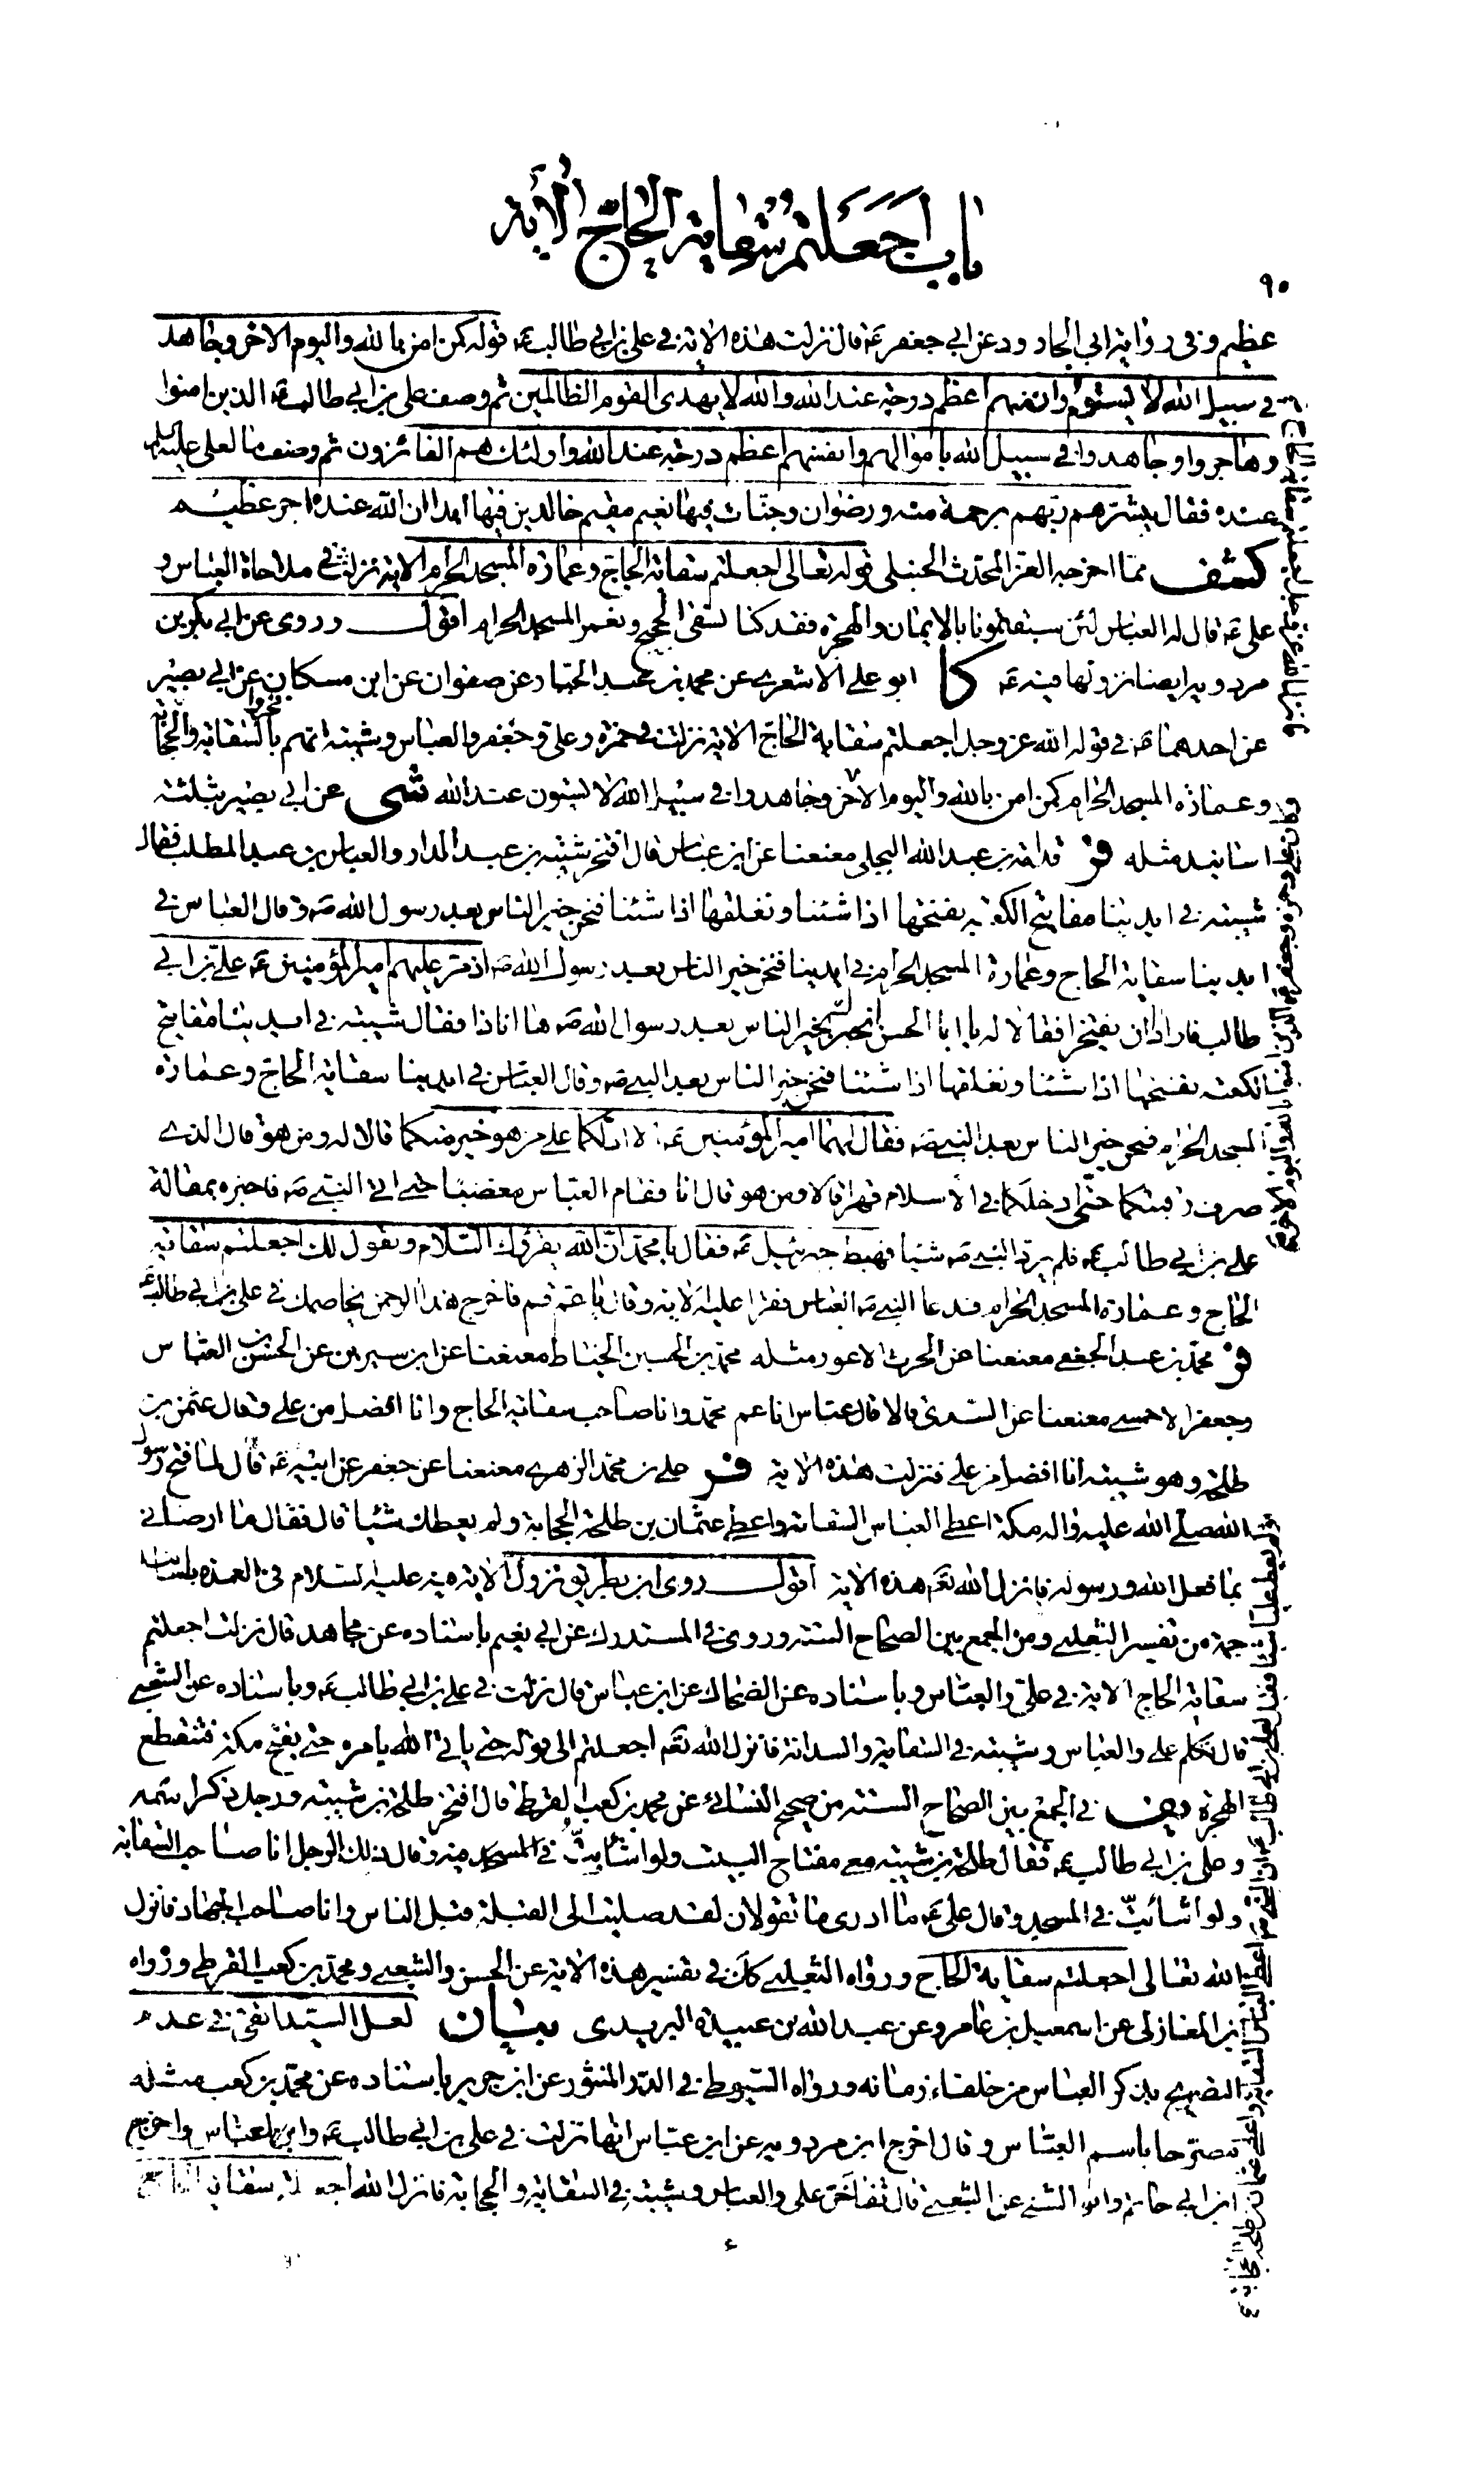 باب أَجَعَلتم سُقاية الحاجّ الأية
٩٠
عظيم وفى رواية ابي الجارود عن ابي جعفر ع قال نزلت هذه الاية فى على بن ابي طالب ع قوله كمن امن بالله واليوم الاخر وجاهد
فى سبيل الله لا يستوون عند الله والله لا يهدى القوم الظالمين ثم وصف على بن ابي طالب ع الذين امنوا
وهاجروا وجاهدوا فى سبيل الله باموالهم وانفسهم اعظم درجة عند الله واولئك هم الفائزون ثم وصف ما لعلى عليه السلم
عنده فقال يبشرهم ربهم برحمة منه ورضوان وجنات فيها نعيم مقيم خالدين فيها ابدا ان الله عنده اجر عظيم
كشف ممّا اخرجه العز المحدث الحنبلى قوله تعالى اجعلتم سقاية الحاجّ وعمارة المسجد الحرام الاية نزلت فى ملاحاة العباس و
على ع قال له العباس لئن سبقتمونا بالايمان والهجرة فقد كنا نسقى الحجيج ونعمر المسجد الحرام اقول وروى عن ابي بكر بن
مردويه ايضا نزولها فيه ع كا ابو على الاشعرى عن محمد بن عبد الجبار عن صفوان عن ابن مسكان عن ابي بصير
عن احدهما ع فى قوله الله عز وجل اجعلتم سقاية الحاجّ الاية نزلت فى حمزة وعلى وجعفر والعباس وشيبة انهم فخروا بالسقاية والحجابة
وعمارة المسجد الحرام كمن امن بالله واليوم الاخر وجاهدوا فى سبيل الله لا يستون عند الله شى عن ابي بصير بثلثة
اسانيد مثله فر قدامة بن عبد الله البجلى معنعنا عن ابن عباس قال افتخر شيبة بن عبد الدار والعباس بن عبد المطلب فقال
شيبة فى ايدينا مفاتيح الكعبة نفتحها اذا شئنا ونغلقها اذا شئنا فنحن خير الناس بعد رسول الله ص وقال العباس فى
ايدينا سقاية الحاج وعمارة المسجد الحرام فى ايدينا فنحن خير الناس بعد رسول الله ص اذ مرّ عليهم امير المؤمنين ع على بن ابي
طالب فاراد ان يفتخر افقالا له يا ابا الحسن انخبرك بخير الناس بعد رسول الله ص ها انا ذا فقال شيبة فى ايدينا مفاتيح
الكعبة نفتحها اذا شئنا ونغلقها اذا شئنا فنحن خير الناس بعد النبي ص وقال العباس فى ايدينا سقاية الحاجّ وعمارة
المسجد الحرام فنحن خير الناس بعد النبي ص فقال لهما امير المؤمنين ع الا ادلكما على من هو خير منكما قالا له ومن هو قال الذى
صرف رقبتكما حتّى ادخلكما فى الاسلام قهرا قالا ومن هو قال انا فقام العباس مغضبا حتى اتى النبي ص فاخبره بمقالة
على بن ابي طالب ع فلم يرد النبي ص شيئا فهبط جبرئيل ع فقال يا محمد انّ الله يقرؤك السّلام ويقول لك اجعلتم سقاية
الحاج وعمارة المسجد الحرام فدعا النبي ص العباس فقرأ عليه الاية وقال يا عم قم فاخرج هذا الرحمن يخاصمك فى على بن ابي طالب ع
فر محمد بن عبد الجعفى معنعنا عن الحرث الاعور مثله محمد بن الحسين الخياط معنعنا عن ابن سيرين عن الحسن بن العباس
وجعفر الاحمسى معنعنا عن السدى قالا قال عباس انا عم محمد وانا صاحب سقاية الحاج وانا افضل من على وقال عثمن بن
طلحة وهو شيبة انا افضل من على فنزلت هذه الاية فر على بن محمد الزهرى معنعنا عن جعفر عن ابيه ع قال لما فتح رسول
الله صلى الله عليه واله مكة اعطى العباس السقاية واعطى عثمان بن طلحة الحجابة ولم يعطك شيئا قال فقال ما ارضانى
بما فعل الله ورسوله فانزل الله تع هذه الاية اقول روى ابن بطريق نزول الاية فيه عليه السلام فى العمدة باسانيد
جمة من تفسير الثعلبى ومن الجمع بين الصحاح الستة وروى فى المستدرك عن ابي نعيم باسناده عن مجاهد قال نزلت اجعلتم
سقاية الحاج الاية فى على والعباس وباسناده عن الضحاك عن ابن عباس قال نزلت فى على بن ابي طالب ع وباسناده عن الشعبى
قال تكلم على والعباس وشيبة فى السقاية والسدانة فانزل الله تع اجعلتم الى قوله حتى ياتى الله بامره حتى يفتح مكة فتنقطع
الهجرة يف فى الجمع بين الصحاح الستة من صحيح النسائى عن محمد بن كعب القرظى قال افتخر طلحة بن شيبة ورجل ذكر اسمه
وعلى بن ابي طالب ع فقال طلحة بن شيبة معى مفتاح البيت ولو اشاء بتّ فى المسجد فيه وقال ذلك الرجل انا صاحب السقاية
ولو اشاء بتّ فى المسجد وقال على ع ما ادرى ما تقولان لقد صليت الى القبلة قبل الناس وانا صاحب الجهاد فانزل
الله تعالى اجعلتم سقاية الحاج ورواه الثعلبى كان فى تفسير هذه الاية عن الحسن والشعبى ومحمد بن كعب القرظى ورواه
بن المغازلى عن اسمعيل بن عامر وعن عبد الله بن عبيدة البريدى بيان لعل السيد اتقى فى عدم
التصريح بذكر العباس من خلفاء زمانه ورواه السيوطى فى الدر المنثور عن ابن جرير باسناده عن محمد بن كعب مثله
مصرّحا باسم العباس وقال اخرج ابن مردويه عن ابن عباس انها نزلت فى على بن ابي طالب ع والعباس واخرج
ابن ابي حاتم وابو الشيخ عن الشعبى قال تفاخر على والعباس وشيبة فى السقاية والحجابة فانزل الله اجعلتم سقاية الحاج
وكان على وحمزة وجعفر ع الذين امنوا بالله واليوم الاخر
ولم يعط عليا شيئا فقيل لعلى بن ابي طالب ع ان النبى ص اعطى العباس السقاية واعطى عثمان بن طلحة الحجابة